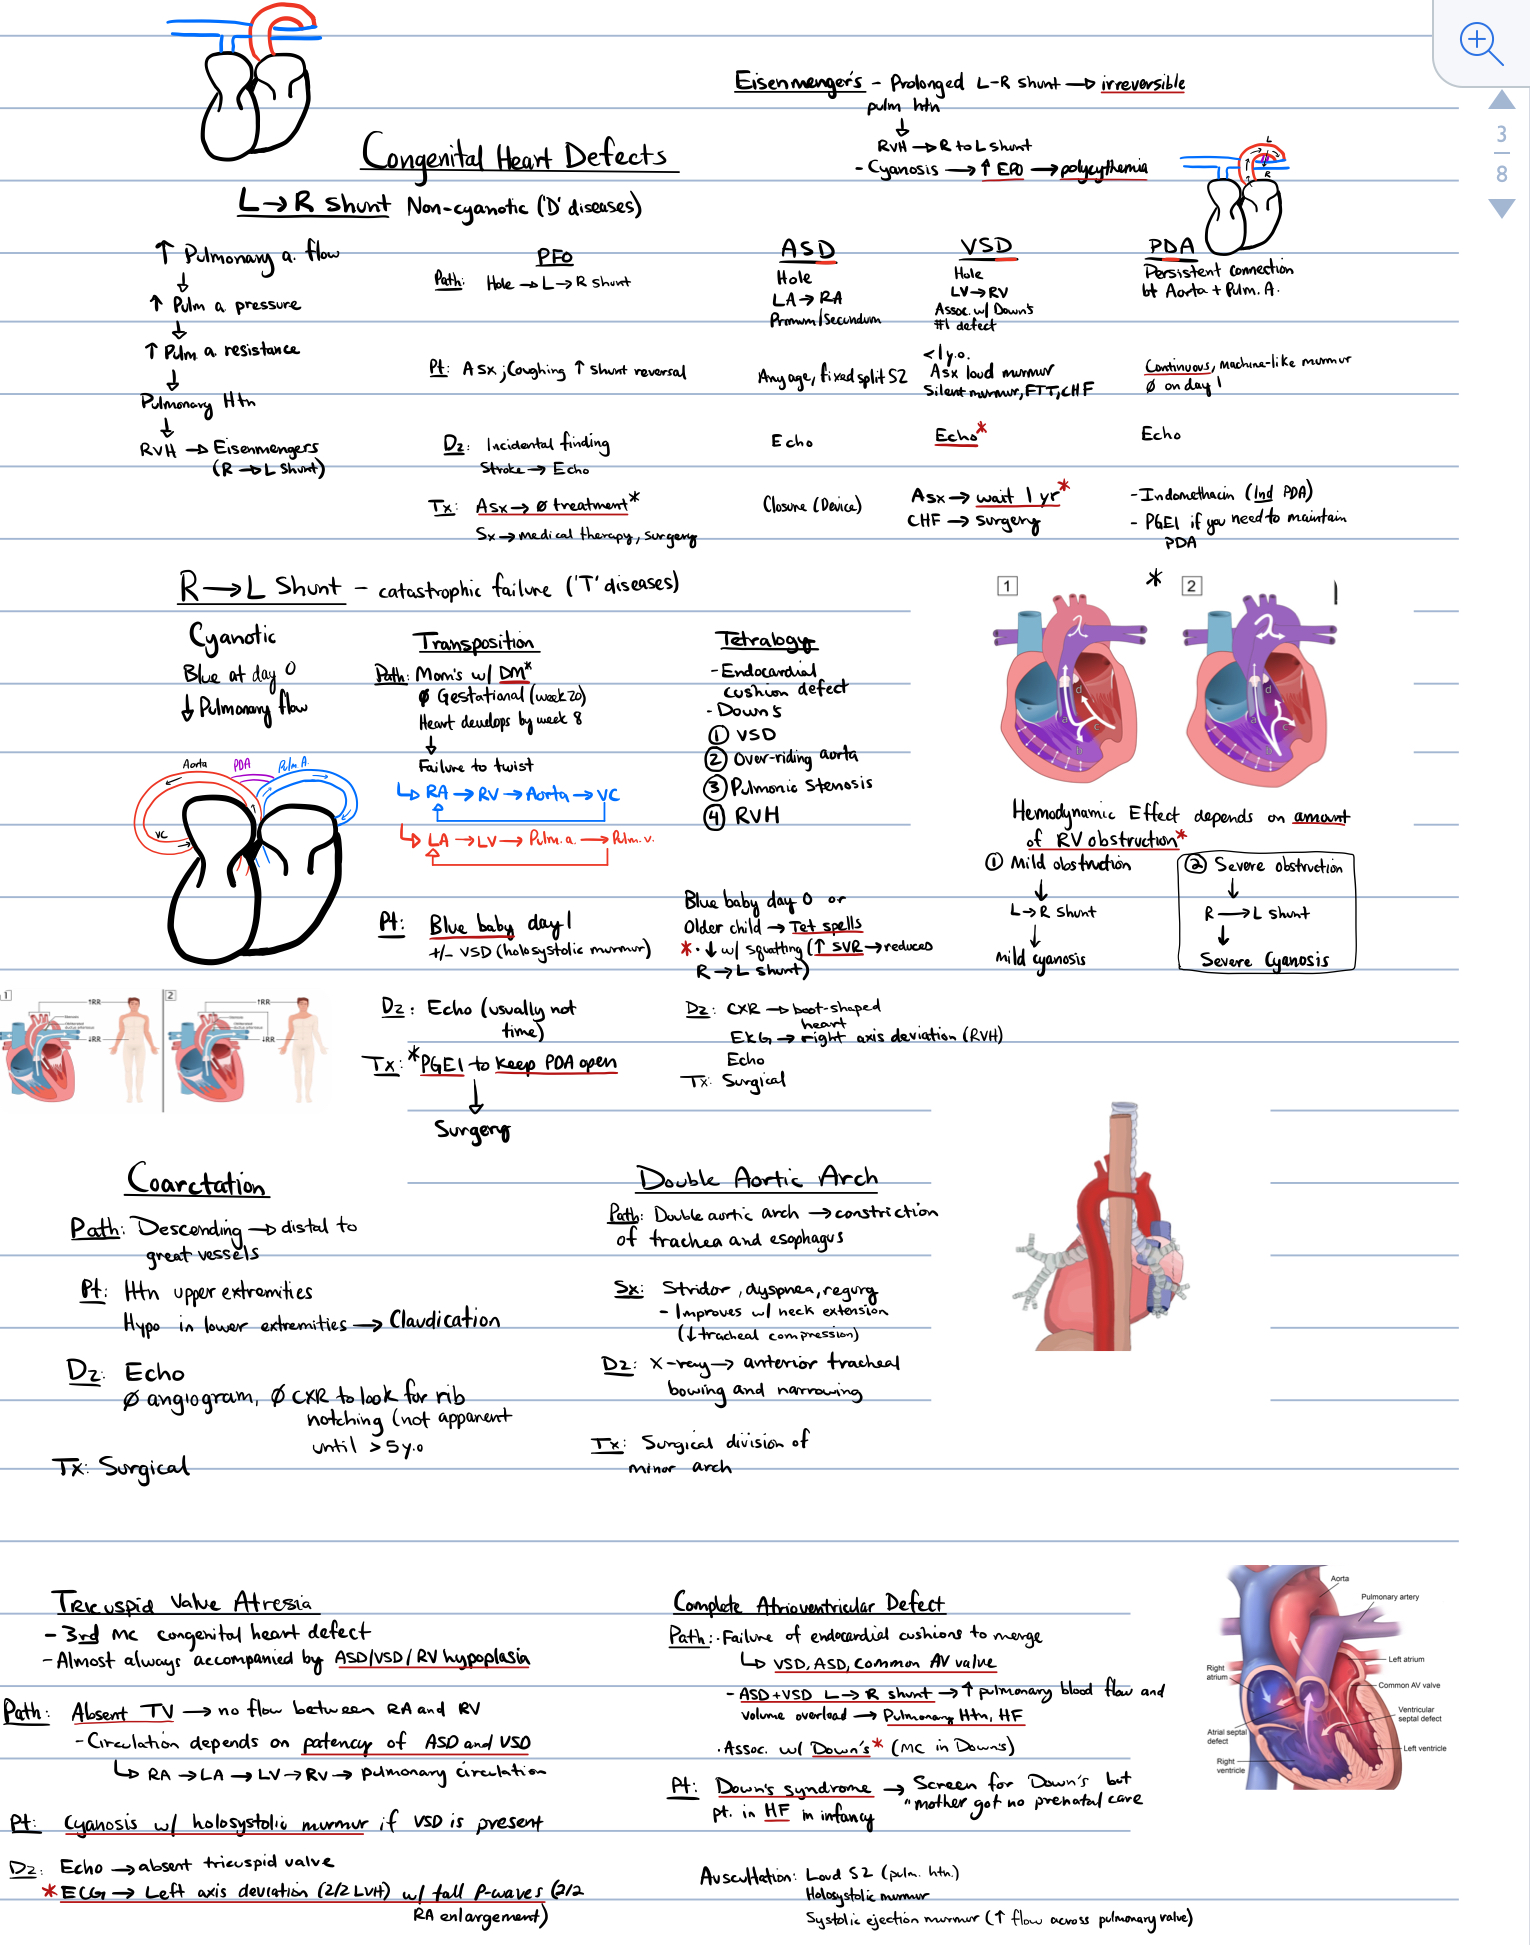 3
8
Eisenmenger's - Prolonged L-R shunt → irreversible
pulm htn
↓
RVH → R to L shunt
- Cyanosis → ↑ EPO → polycythemia
L
R
Congenital Heart Defects
L→R shunt Non-cyanotic ('D' diseases)
↑ Pulmonary a. flow
↓
↑ Pulm a pressure
↓
↑ Pulm a. resistance
↓
Pulmonary Htn
↓
RVH → Eisenmengers
(R → L shunt)
PFO
Path: Hole → L→R shunt
Pt: Asx; Coughing ↑ shunt reversal
Dz: Incidental finding
Stroke → Echo
Tx: Asx → Ø treatment*
Sx → medical therapy, surgery
ASD
Hole
LA → RA
Primum/Secundum
Any age, fixed split S2
Echo
Closure (Device)
VSD
Hole
LV → RV
Assoc. w/ Down's
#1 defect
<1 y.o.
Asx loud murmur
Silent murmur, FTT, CHF
Echo*
Asx → wait 1 yr*
CHF → surgery
PDA
Persistent connection
bt Aorta + Pulm. A.
Continuous, machine-like murmur
Ø on day 1
Echo
- Indomethacin (Ind PDA)
- PGE1 if you need to maintain
PDA
R→L Shunt - catastrophic failure ('T' diseases)
Cyanotic
Blue at day 0
↓ Pulmonary flow
Aorta PDA Pulm A.
VC
Transposition
Path: Mom's w/ DM*
Ø Gestational (week 20)
Heart develops by week 8
↓
Failure to twist
↳ RA → RV → Aorta → VC
↳ LA → LV → Pulm. a. → Pulm. v.
Pt: Blue baby day 1
+/- VSD (holosystolic murmur)
Dz: Echo (usually not
time)
Tx: *PGE1 to keep PDA open
↓
Surgery
Tetralogy
- Endocardial
cushion defect
- Down's
① VSD
② Over-riding aorta
③ Pulmonic Stenosis
④ RVH
Blue baby day 0 or
Older child → Tet spells
*· ↓ w/ squatting (↑ SVR → reduced
R → L shunt)
Dz: CXR → boot-shaped
heart
EKG → right axis deviation (RVH)
Echo
Tx: Surgical
1
* 2
a
b
c
d
a
b
c
d
Hemodynamic Effect depends on amount
of RV obstruction*
① Mild obstruction
↓
L→R shunt
↓
Mild cyanosis
② Severe obstruction
↓
R → L shunt
↓
Severe Cyanosis
1
↑RR
↓RR
2
↑RR
↓RR
Coarctation
Path: Descending → distal to
great vessels
Pt: Htn upper extremities
Hypo in lower extremities → Claudication
Dz: Echo
Ø angiogram, Ø CXR to look for rib
notching (not apparent
until >5 y.o
Tx: Surgical
Double Aortic Arch
Path: Double aortic arch → constriction
of trachea and esophagus
Sx: Stridor, dyspnea, regurg
- Improves w/ neck extension
(↓ tracheal compression)
Dz: X-ray → anterior tracheal
bowing and narrowing
Tx: Surgical division of
minor arch
Tricuspid Valve Atresia
- 3rd MC congenital heart defect
- Almost always accompanied by ASD/VSD/RV hypoplasia
Path: Absent TV → no flow between RA and RV
- Circulation depends on patency of ASD and VSD
↳ RA → LA → LV → RV → pulmonary circulation
Pt: Cyanosis w/ holosystolic murmur if VSD is present
Dz: Echo → absent tricuspid valve
*ECG → Left axis deviation (2/2 LVH) w/ tall P-waves (2/2
RA enlargement)
Complete Atrioventricular Defect
Path: · Failure of endocardial cushions to merge
↳ VSD, ASD, Common AV valve
- ASD+VSD L→R shunt → ↑ pulmonary blood flow and
volume overload → Pulmonary Htn, HF
· Assoc. w/ Down's* (MC in Down's)
Pt: Down's syndrome → Screen for Down's but
pt. in HF in infancy "mother got no prenatal care
Auscultation: Loud S2 (pulm. htn.)
Holosystolic murmur
Systolic ejection murmur (↑ flow across pulmonary valve)
Aorta
Pulmonary artery
Left atrium
Common AV valve
Ventricular
septal defect
Left ventricle
Right
atrium
Atrial septal
defect
Right
ventricle